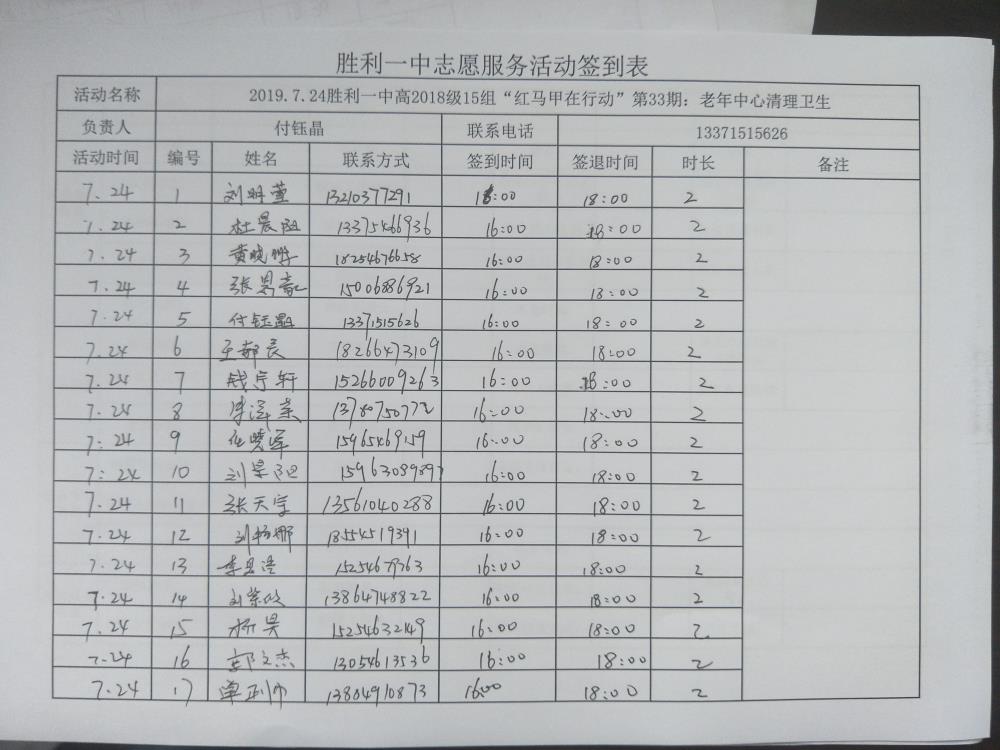 胜利一中志愿服务活动签到表
活动名称 2019.7.24胜利一中高2018级15组“红马甲在行动”第33期：老年中心清理卫生
负责人 付钰晶 联系电话 13371515626
活动时间 编号 姓名 联系方式 签到时间 签退时间 时长 备注
7.24 1 刘明萱 13210377291 16:00 18:00 2
7.24 2 杜晨阳 13375466936 16:00 18:00 2
7.24 3 黄晓晔 18254676658 16:00 18:00 2
7.24 4 张昺豪 15006886921 16:00 18:00 2
7.24 5 付钰晶 13371515626 16:00 18:00 2
7.24 6 王郝晨 18266473109 16:00 18:00 2
7.24 7 钱宇轩 15266009263 16:00 18:00 2
7.24 8 16:00 18:00 2
7:24 9 任晓军 16:00 18:00 2
7:24 10 刘景阳 15963089897 16:00 18:00 2
7.24 11 张天宇 13561040288 16:00 18:00 2
7.24 12 刘杨娜 18554519391 16:00 18:00 2
7.24 13 16:00 18:00 2
7.24 14 13864748822 16:00 18:00 2
7.24 15 杨昊 15254632149 16:00 18:00 2
7.24 16 郭文杰 13054613536 16:00 18:00 2
7.24 17 13804910873 16:00 18:00 2